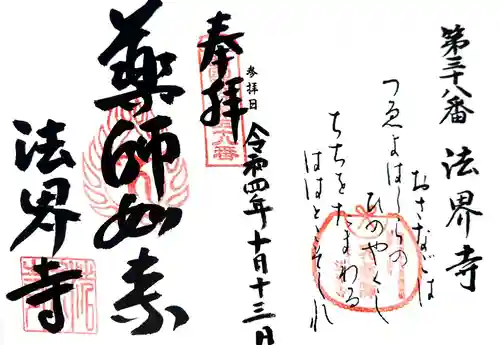 第三十八番 法界寺
おさなごは
つゑよはしらの
ひのやくし
ちちをたまわる
ははとこそしれ
奉拝
参拝日
令和四年十月十三日
薬師如来
法界寺